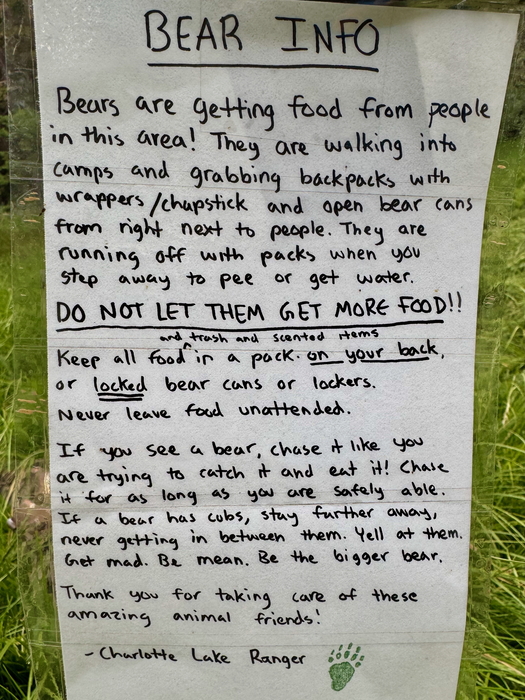 BEAR INFO
Bears are getting food from people
in this area! They are walking into
camps and grabbing backpacks with
wrappers/chapstick and open bear cans
from right next to people. They are
running off with packs when you
step away to pee or get water.
DO NOT LET THEM GET MORE FOOD!!
and trash and scented items
Keep all food ^ in a pack on your back,
or locked bear cans or lockers.
Never leave food unattended.
If you see a bear, chase it like you
are trying to catch it and eat it! Chase
it for as long as you are safely able.
If a bear has cubs, stay further away,
never getting in between them. Yell at them.
Get mad. Be mean. Be the bigger bear.
Thank you for taking care of these
amazing animal friends!
- Charlotte Lake Ranger